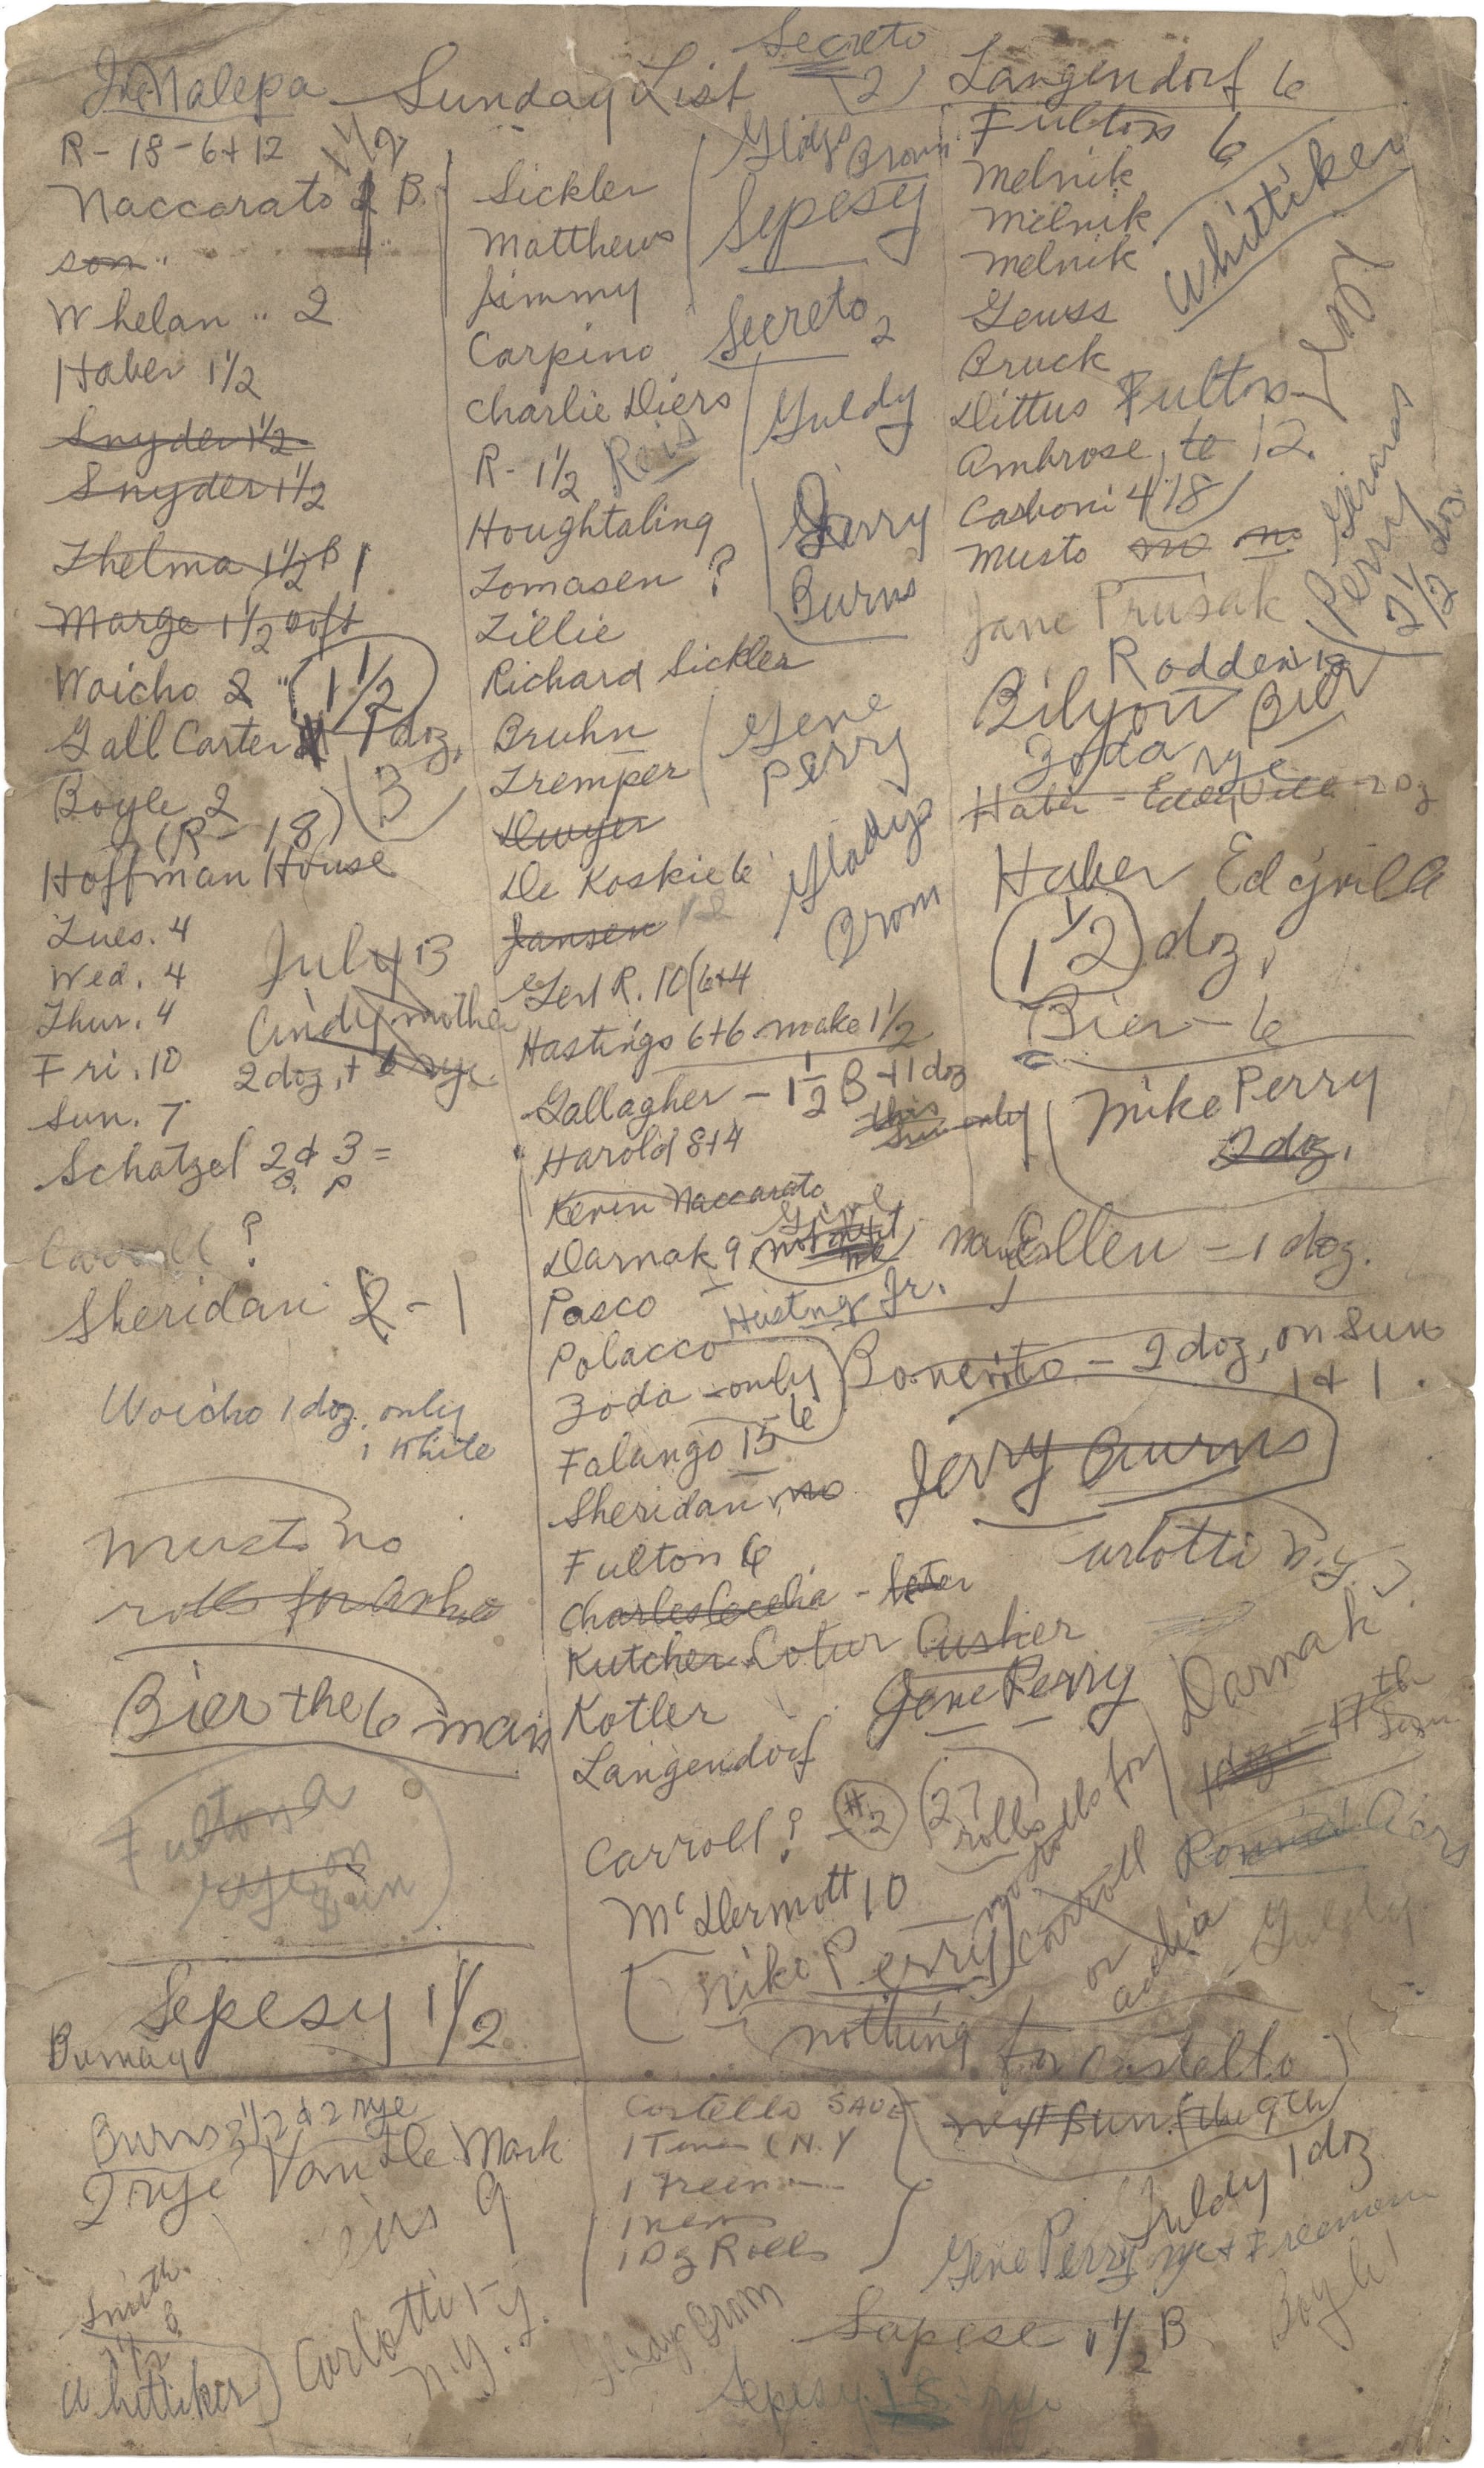 Malepa Sunday List
Secreto
(2)
Langendorf 6
R - 18 - 6 + 12
1 1/2
Naccarato B.
son "
Whelan " 2
Haber 1 1/2
Snyder 1 1/2
Snyder 1 1/2
Thelma 1 1/2 B 1
Marge 1 1/2
Woicho 2 " (1 1/2
Gall Carter 1 doz.
Boyle 2 (3
(R - 18)
Hoffman House
Tues. 4
Wed. 4
Thur. 4
Fri. 10
Sun. 7
July 13
Cindy mother
2 doz, + 6 rye
Schatzel 2 + 3 =
B. P
Carroll ?
Sheridan 2 - 1
Woicho 1 doz. only
1 white
Musto no
rolls for
Bier the 6 man
Fulton a
rye on
Sun
Sepesy 1 1/2
Burns 2 1/2 + 2 rye
2 rye Van De Mark
9
Smith
B
1 1/2
Whittiker
Carlotti
N.Y.
Sickler
Matthews
Jimmy
Carpino
Charlie Diers
R - 1 1/2 Reis
Houghtaling
Tomasen ?
Lillie
Richard Sickler
Bruhn
Tremper
Dwyer
De Koskie 6
Jansen
Gert R. 10 (6+4
Hastings 6+6 make 1 1/2
Gallagher - 1 1/2 B + 1 doz
this
Sun only
Harold 8+4
Kevin Naccarato
Darnak 9
Pasco
Hastings Jr.
Polacco
Zoda - only
6
Falango 15
Sheridan no
Fulton 6
Charles Cecelia -
Kutcher Cotur Cusher
Kotler
Langendorf
Carroll ? #2 (27
rolls
McDermott 10
Mike Perry
nothing for Costello
next Sun. (the 9th)
Costello SAVE
1 Times (N.Y
1 Freeman
1 news
1 Dz Rolls
Gladys Brown
Sepesy
Secreto 2
Guldy
Gerry
Burns
Gene
Perry
Gladys
Brown
Fultons 6
Melnik
Melnik
Melnik
Whittiker
Geuss
Bruck
Dittus Fultons
Ambrose, 12.
Carboni 4 (18)
Musto no no
Jane Prusak
Gerards
Perry
2 1/2 doz.
Rodden 12
Bilyou Bier
Zoda rye
Haber - Eddyville - 2 Dz
Haber Edyville
(1 1/2) doz,
Bier - 6
Mike Perry
2 doz.
Ellen = 1 doz.
Bonerito - 2 doz, on Sun
1 + 1.
Jerry Burns
Carlotti N.Y.
Gene Perry
Darnak
1 doz. - 17th
Sun
no rolls for
Carroll
or
Ronnie Diers
Guldy
Guldy 1 doz
Gene Perry rye + Freeman
Boyle 1
Sapese 1 1/2 B
Sepesy 1 B - rye
Gladys Brown